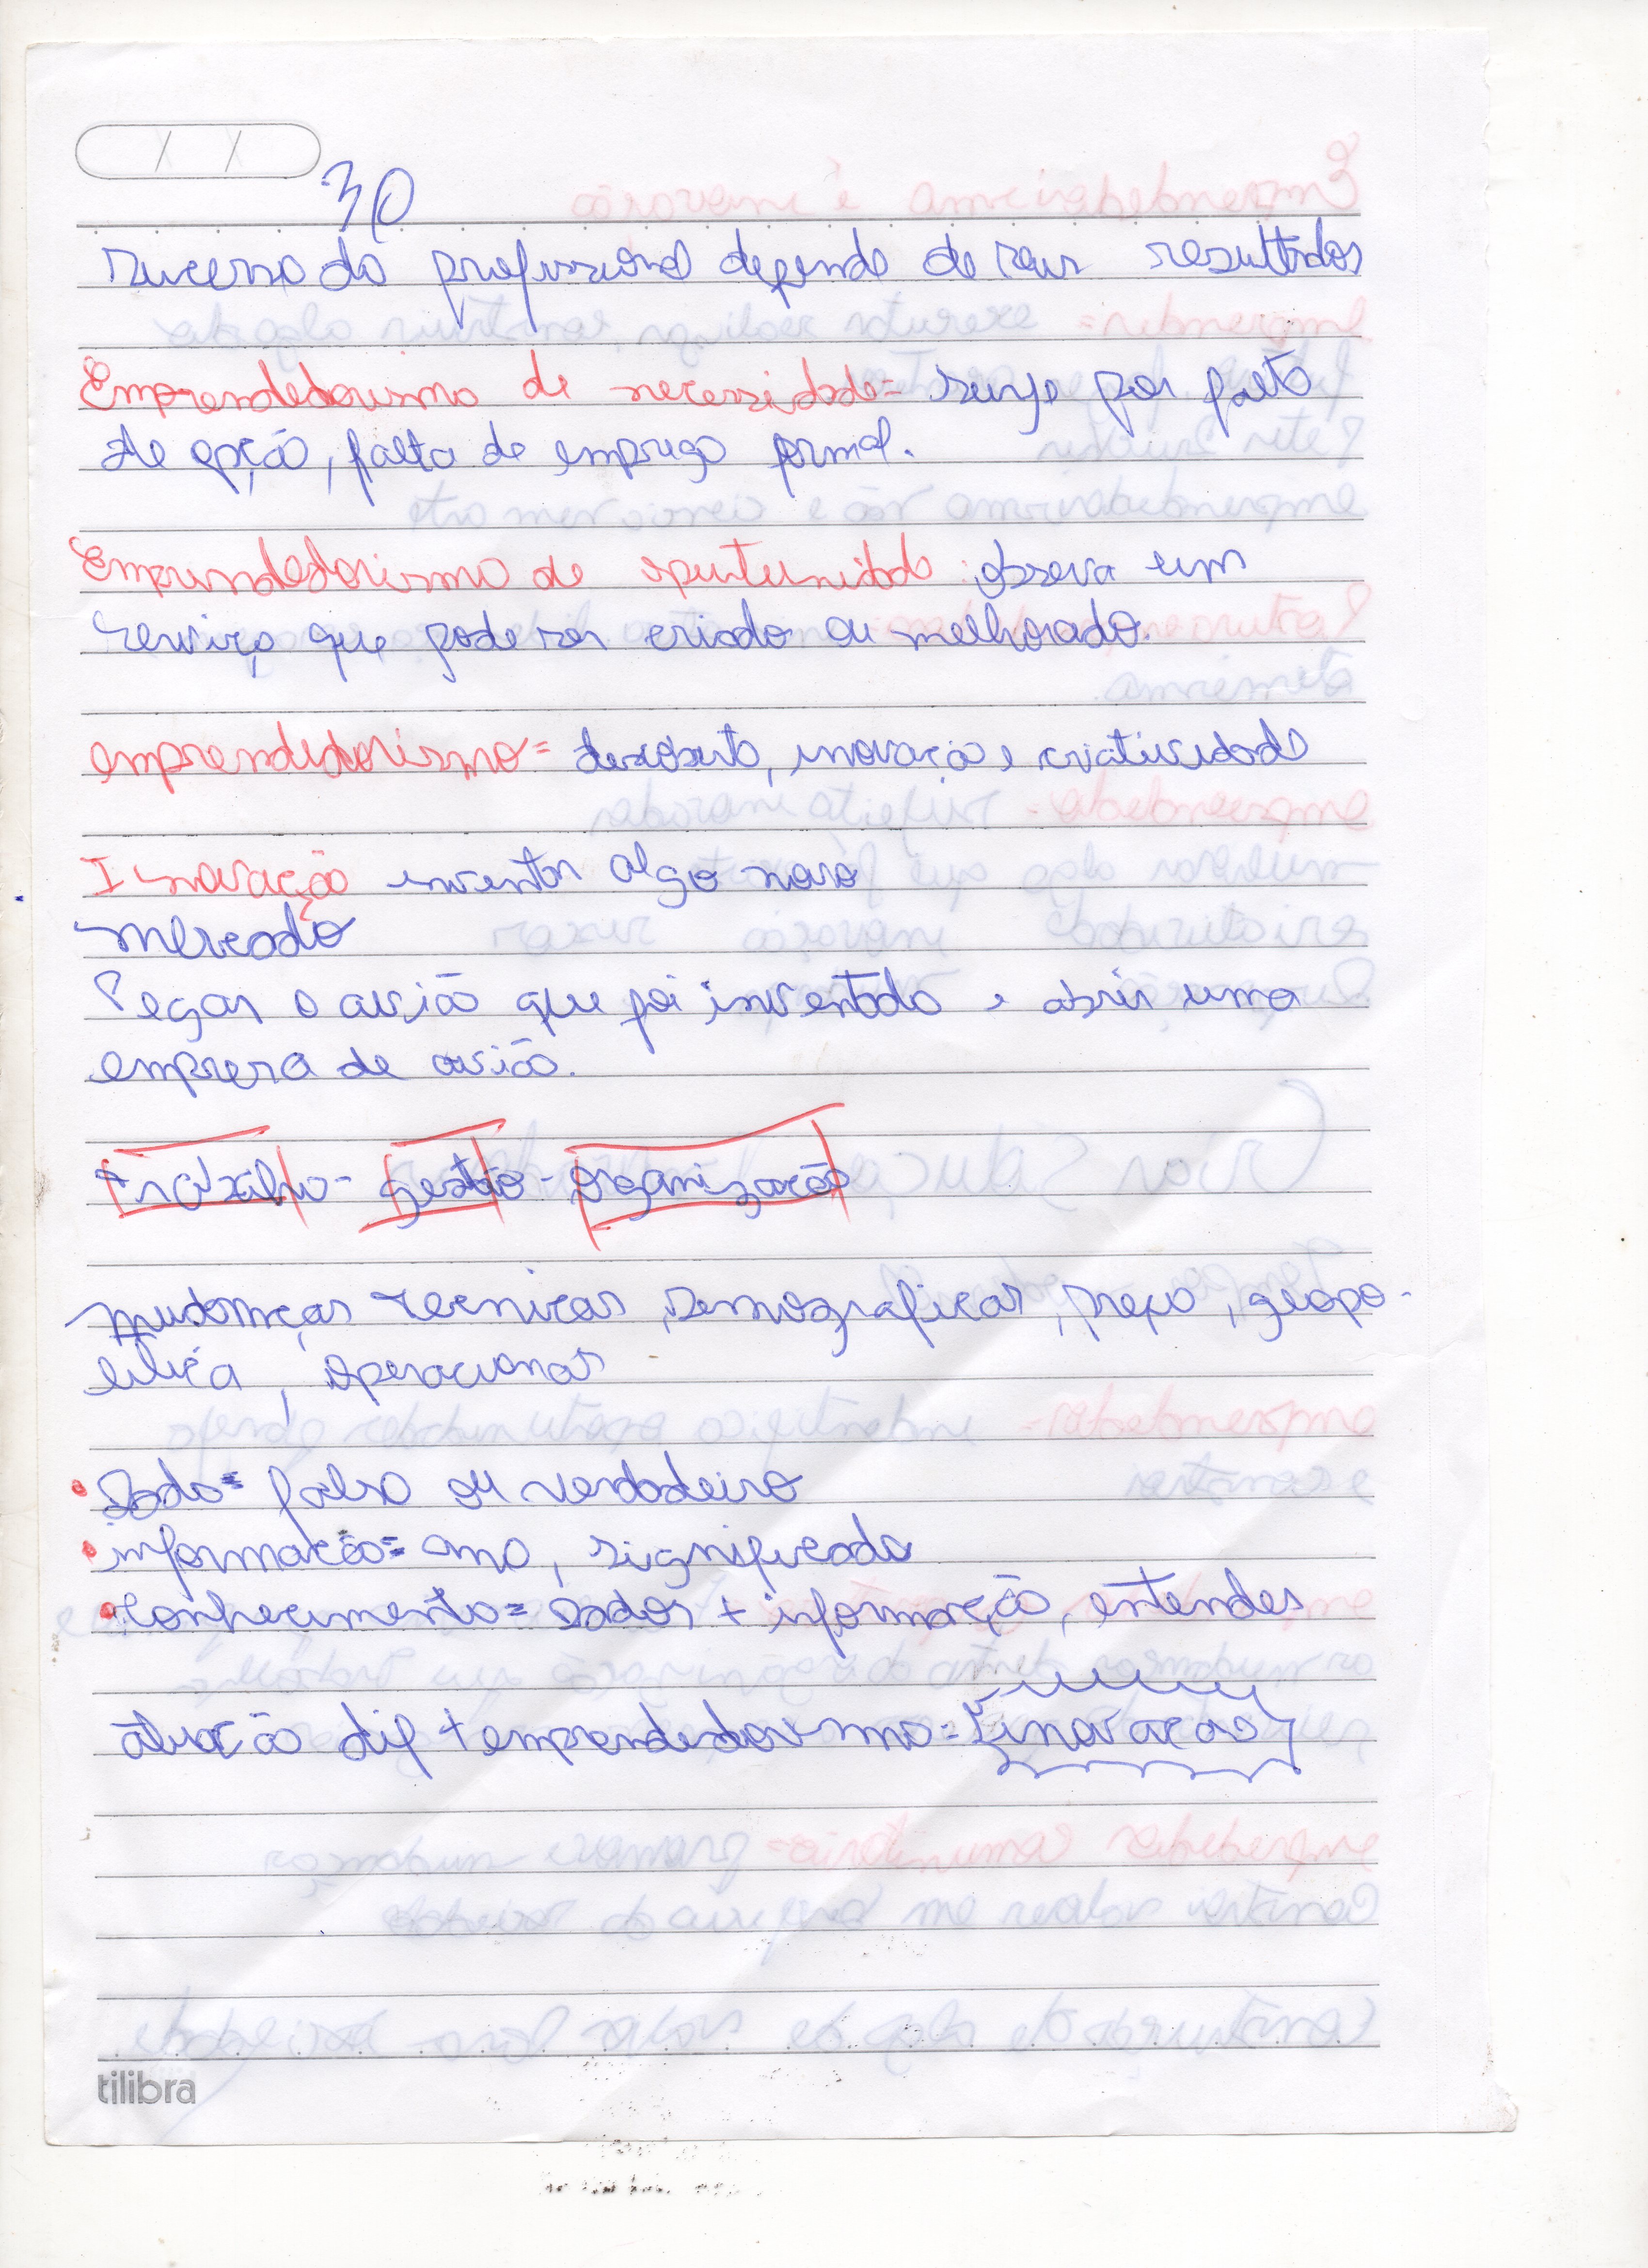 30
Sucesso do profissional depende de seus resultados
Emprendedorismo de necessidade= surge por falta
de opção, falta de emprego formal.
Emprendedorismo de oportunidade: observa um
serviço que pode ser criado ou melhorado.
emprendedorismo= descoberta, inovação e criatividade
Inovação inventar algo novo
mercado
Pegar o avião que foi inventado e abrir uma
empresa de avião.
trabalho - gestão - organização
mudanças tecnicas, demograficas, preço, geopo-
litica, operacionas
• Dado= falso ou verdadeiro
• informação= ano, significado
• conhecimento= dados + informação, entendes
atuação dif + emprendedorismo= {inovação}
tilibra